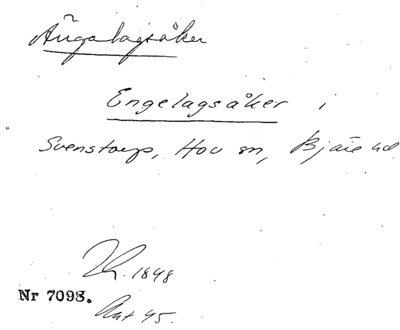 Ängalagsåker
Engelagsåker i
Svenstorp, Hov sn, Bjäre hd
1848
Nr 7093.
Ant 45.